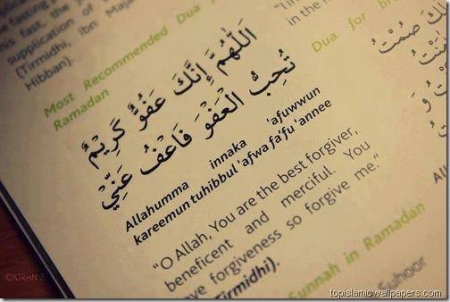 fasting
supplication of
(Tirmidhi, Ibn Maj
Hibban).
Most Recommended Dua
Ramadan
اَللّٰهُمَّ إِنَّكَ عَفُوٌّ كَرِيْمٌ
تُحِبُّ الْعَفْوَ فَاعْفُ عَنِّيْ
Allahumma innaka 'afuwwun
kareemun tuhibbul 'afwa fa'fu 'annee
"O Allah, You are the best forgiver,
beneficent and merciful. You
forgiveness so forgive me."
(Tirmidhi).
"I inten
Ramadan
Dua for b
لَكَ صُمْتُ
Sunnah in Ramadan
Suhoor
©KIRAN
topislamicwallpapers.com